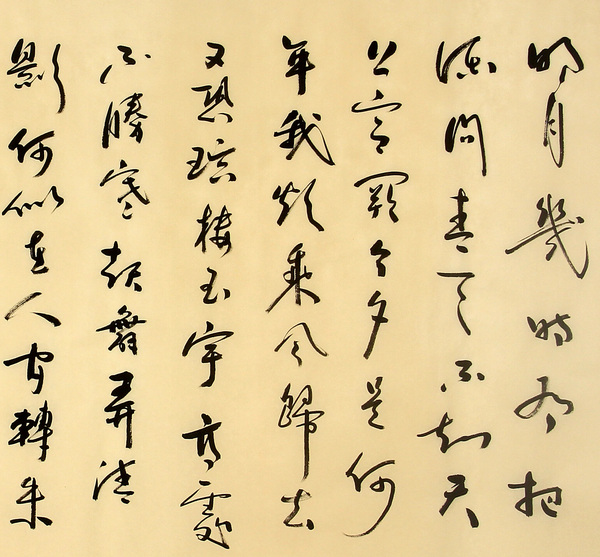 明月幾時有把
酒問青天不知天
上宮闕今夕是何
年我欲乘風歸去
又恐瓊樓玉宇高處
不勝寒起舞弄清
影何似在人間轉朱